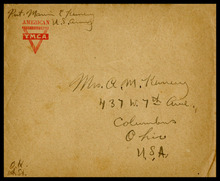 Pvt. Marvin C Kenney
U S Army
AMERICAN
YMCA
Mrs. A. M. Kenney
437 W. 7th Ave,
Columbus
Ohio
U.S.A.
O.K.